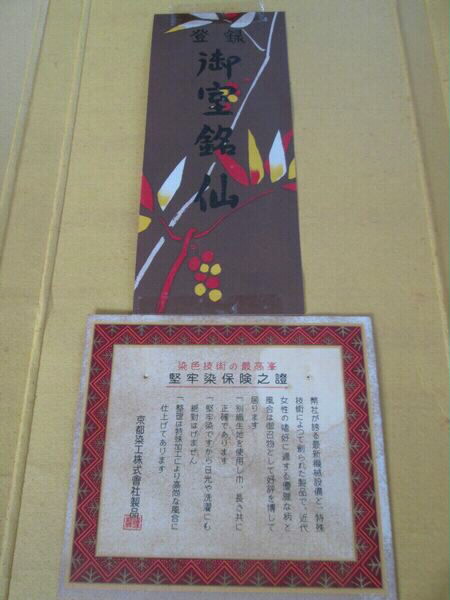 登録
御室銘仙
染色技術の最高峯
堅牢染保険之證
幣社が誇る最新機械設備と、特殊
技術によつて創られた製品で、近代
女性の嗜好に適する優雅な柄と
風合は御召物として好評を博して
居ります
一、別織生地を使用し巾、長さ共に
正確であります
一、堅牢染ですから日光や洗濯にも
絶対はげません
一、整理は特殊加工により高尚な風合に
仕上げてあります
京都染工株式會社製品